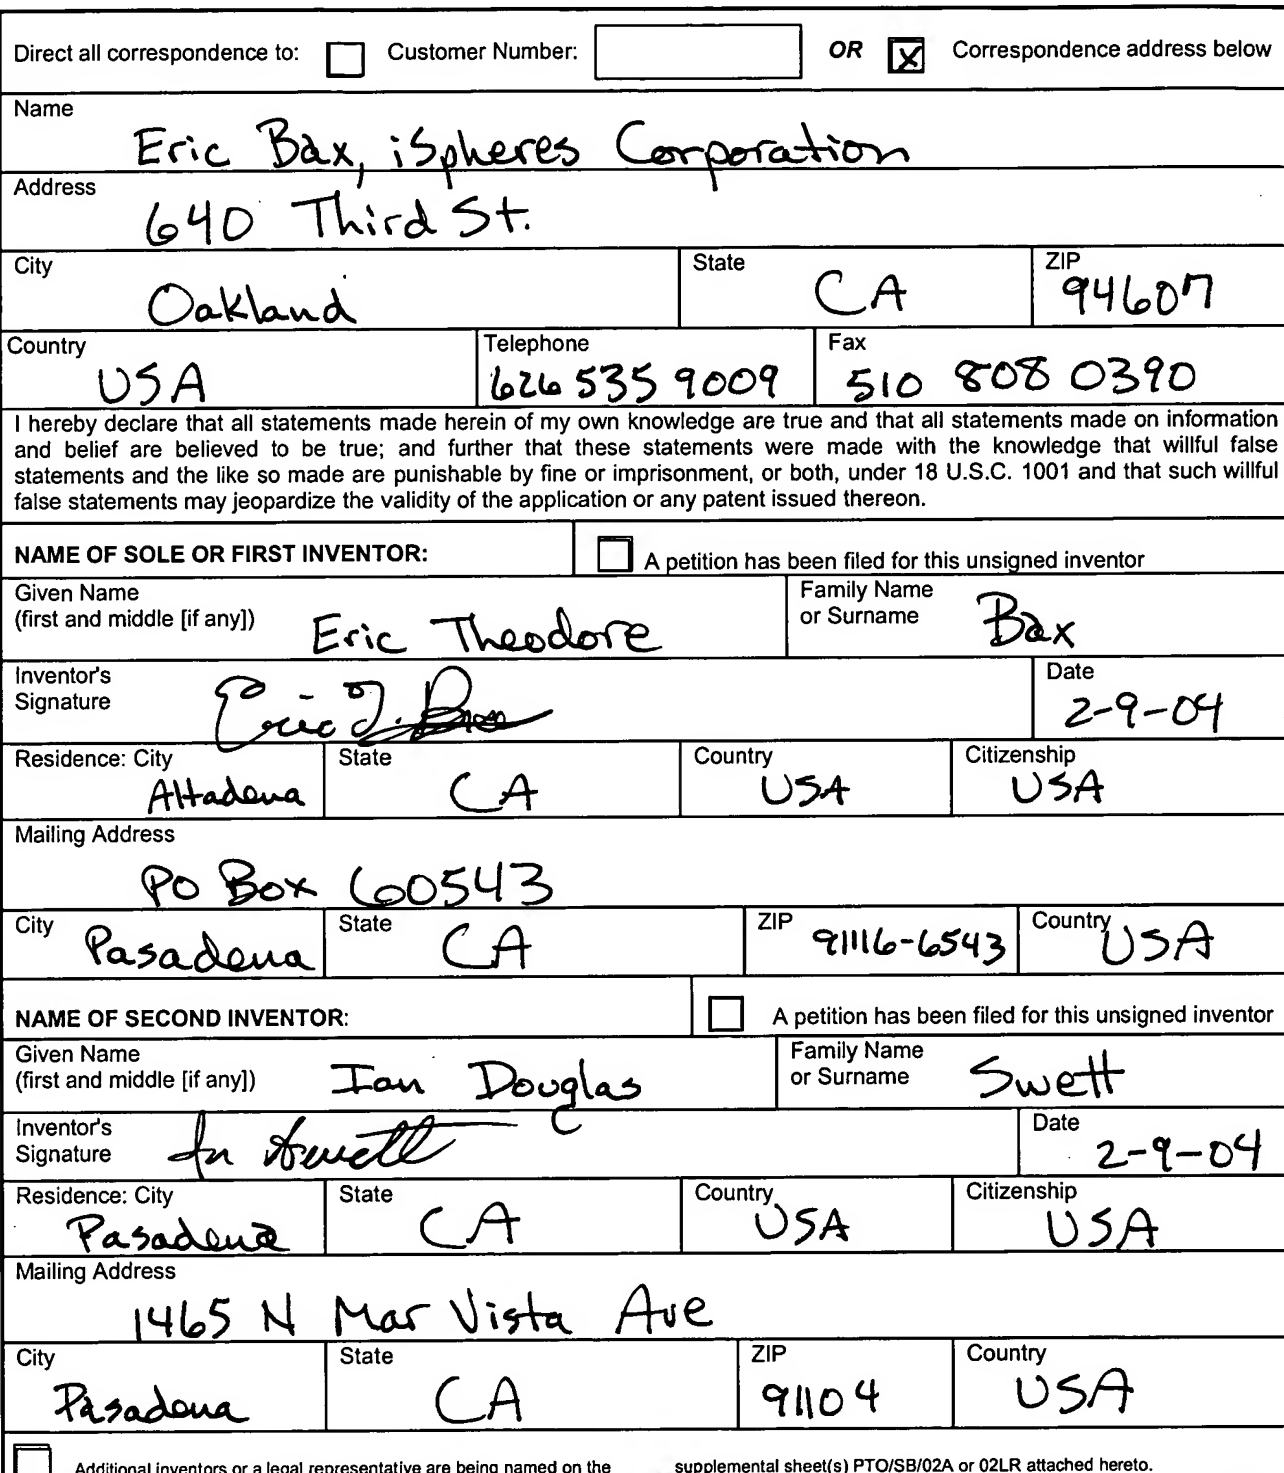 Direct all correspondence to: Customer Number: OR X Correspondence address below
Name
Eric Bax, iSpheres Corporation
Address
640 Third St.
City State ZIP
Oakland CA 94607
Country Telephone Fax
USA 626 535 9009 510 808 0390
I hereby declare that all statements made herein of my own knowledge are true and that all statements made on information
and belief are believed to be true; and further that these statements were made with the knowledge that willful false
statements and the like so made are punishable by fine or imprisonment, or both, under 18 U.S.C. 1001 and that such willful
false statements may jeopardize the validity of the application or any patent issued thereon.
NAME OF SOLE OR FIRST INVENTOR: A petition has been filed for this unsigned inventor
Given Name Family Name
(first and middle [if any]) Eric Theodore or Surname Bax
Inventor's Date
Signature Eric T. Bax 2-9-04
Residence: City State Country Citizenship
Altadena CA USA USA
Mailing Address
PO Box 60543
City State ZIP Country
Pasadena CA 91116-6543 USA
NAME OF SECOND INVENTOR: A petition has been filed for this unsigned inventor
Given Name Family Name
(first and middle [if any]) Ian Douglas or Surname Swett
Inventor's Date
Signature Ian Swett 2-9-04
Residence: City State Country Citizenship
Pasadena CA USA USA
Mailing Address
1465 N Mar Vista Ave
City State ZIP Country
Pasadena CA 91104 USA
Additional inventors or a legal representative are being named on the supplemental sheet(s) PTO/SB/02A or 02LR attached hereto.